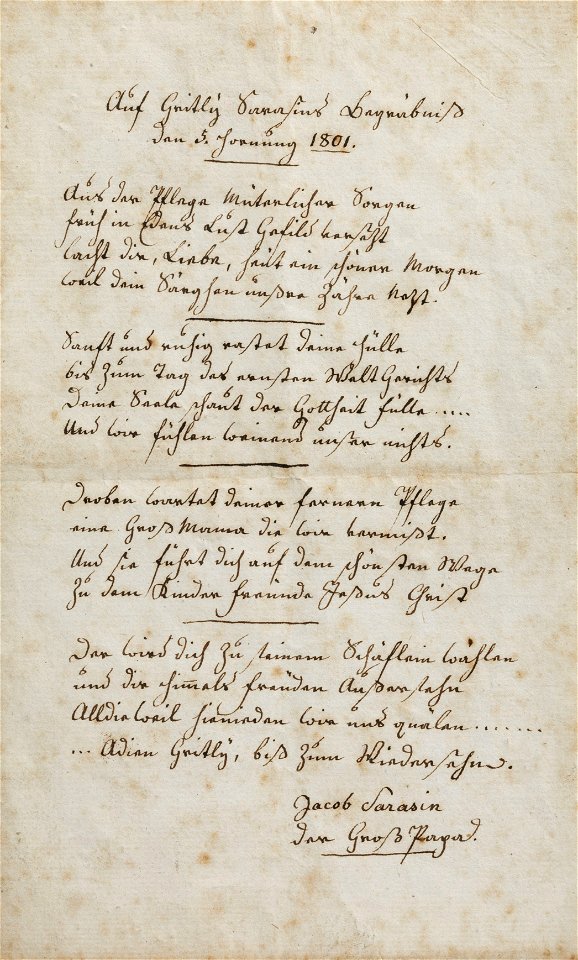 Auf Gritly Sarasins Begräbniß
den 5. Hornung 1801.
Aus der Pflege Müterlicher Sorgen
früh in Edens Lust Gefild versetzt
lacht dir, Liebe, heüt ein schöner Morgen
weil dein Särghen unßre Zähre Netzt.
Sanft und ruhig rastet deine Hülle
bis zum Tag des ernsten WeltGerichts
Deine Seele schaut der Gottheit fülle.....
Und wir fühlen weinend unser nichts.
Droben wartet deiner fernern Pflege
eine GroßMama die wir vermißt.
Und sie führt dich auf dem schönsten Wege
zu dem Kinder freünde Jesus Christ
Der wird dich zu seinem Schäflein wählen
und dir himmels freüden Außersehn
Alldieweil hienieden wir uns quälen.......
... Adieu Gritly, biß zum Wiedersehn.
Jacob Sarasin
der GroßPapa.